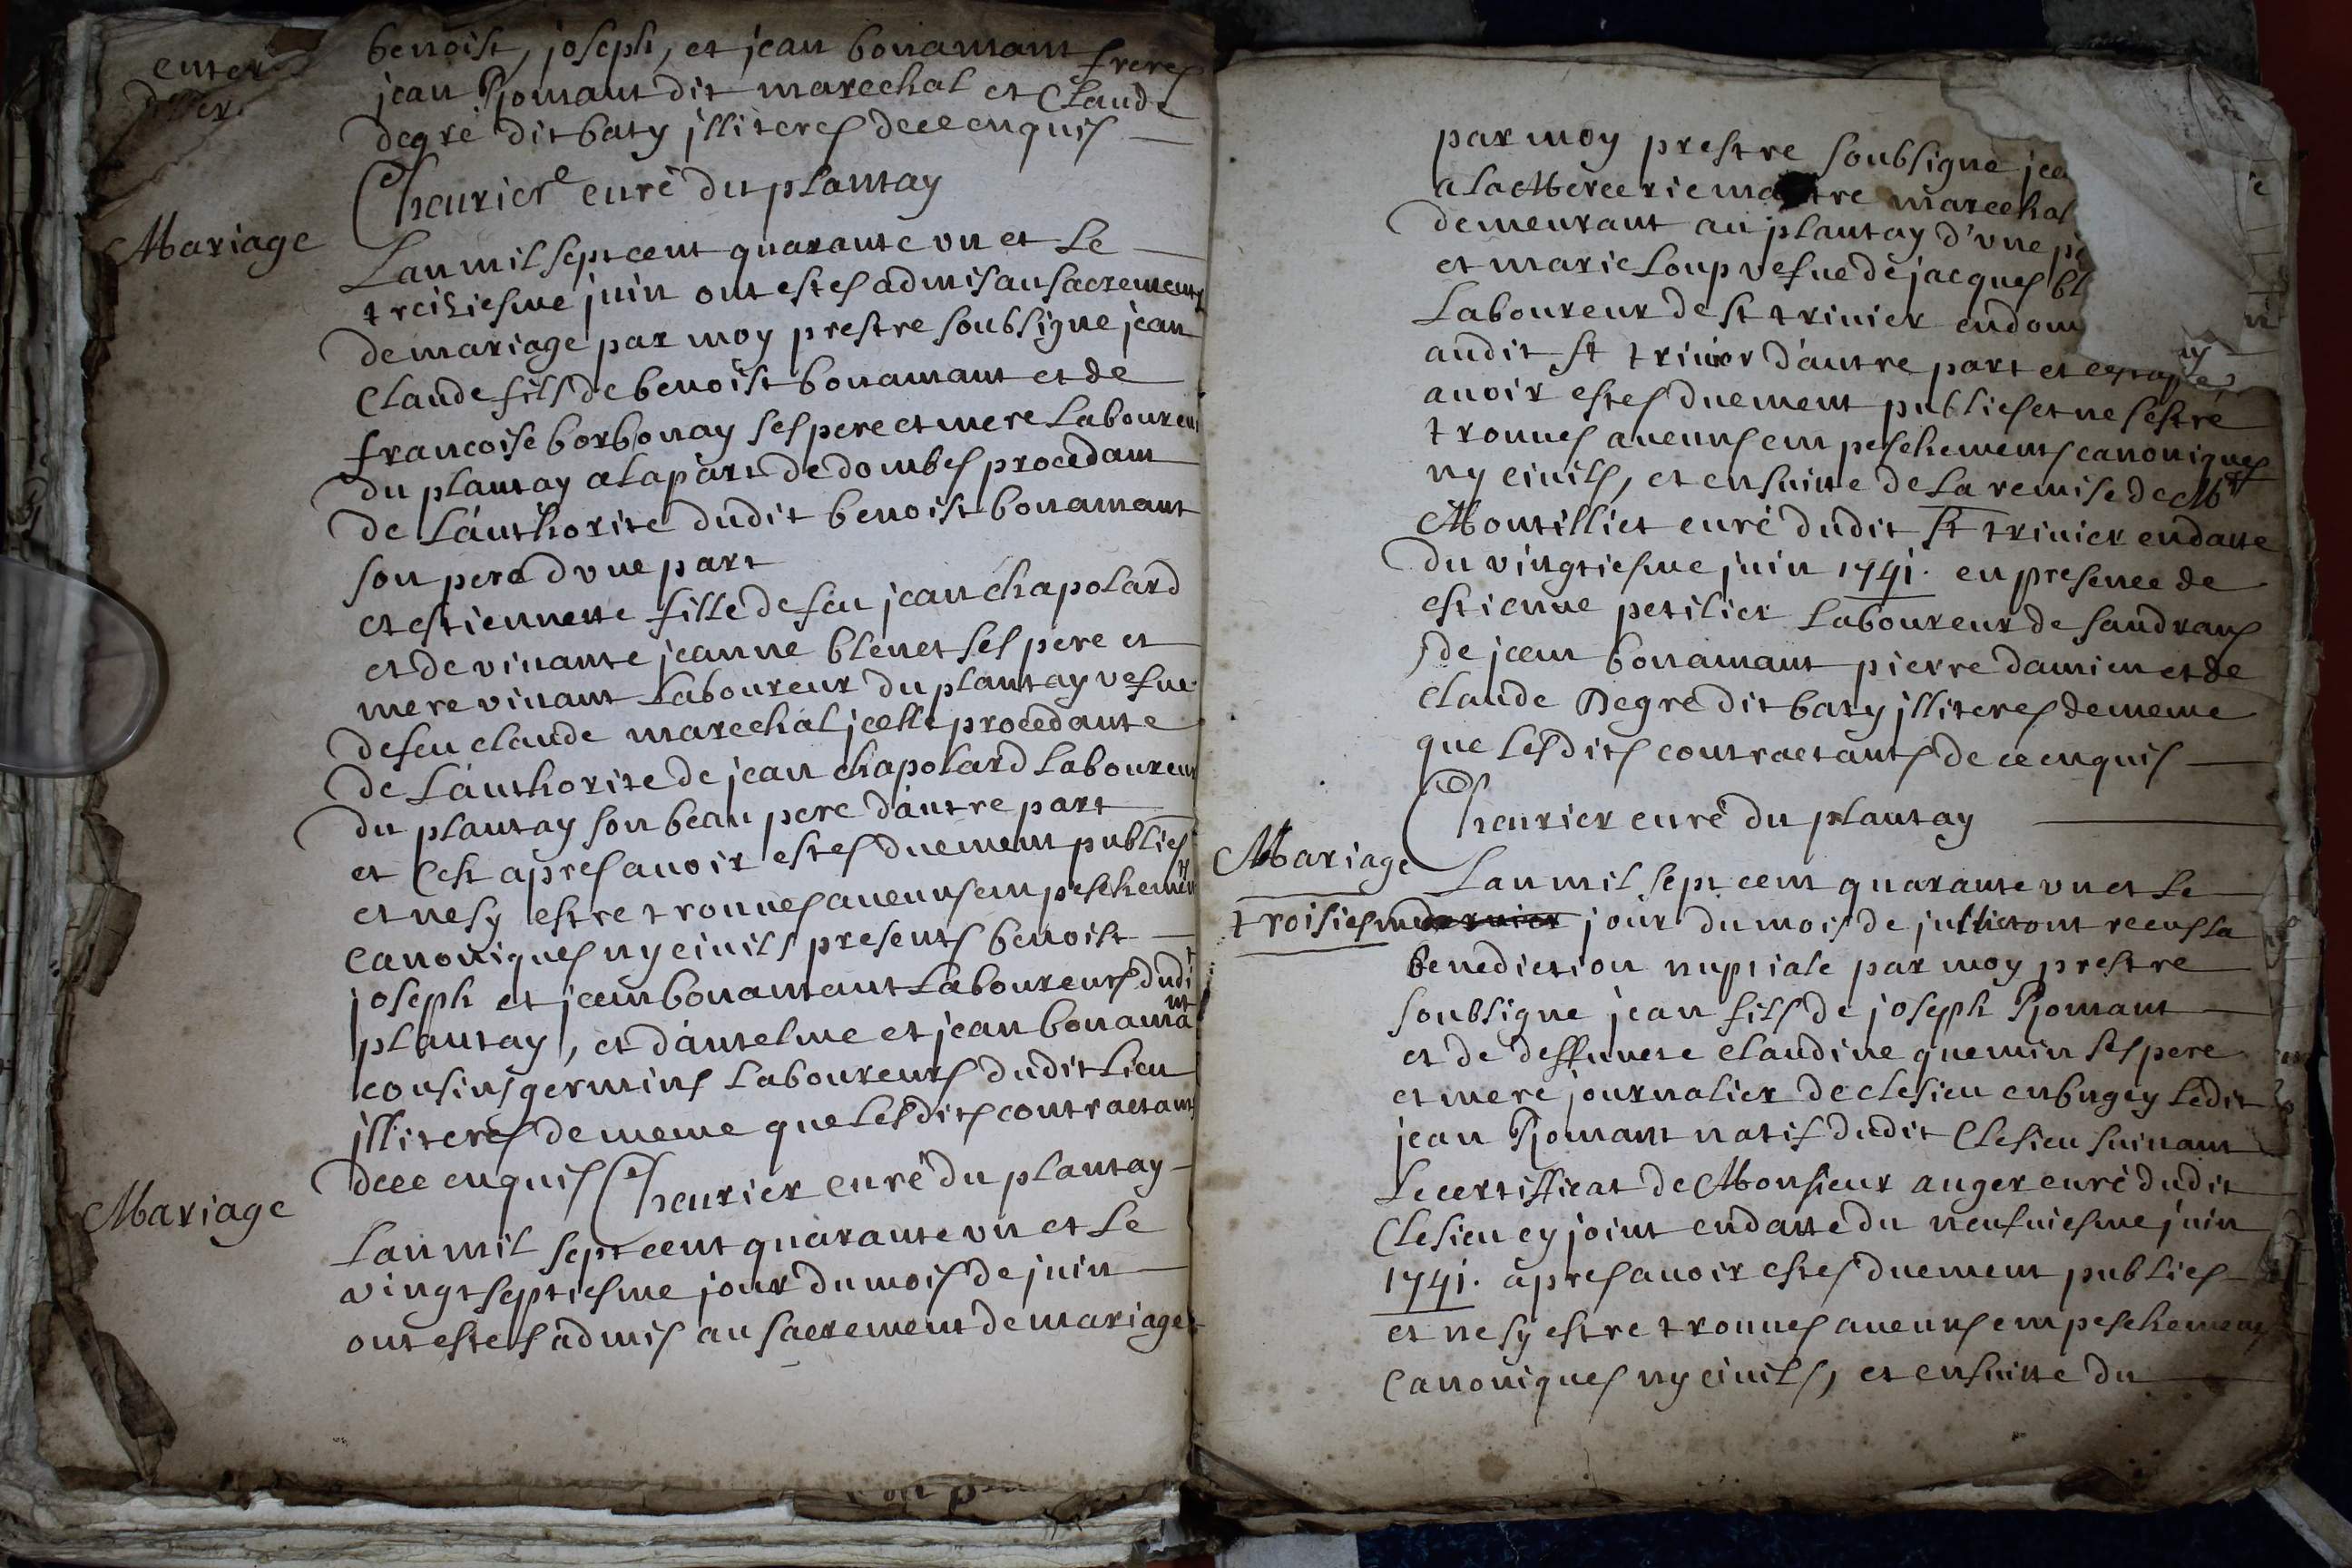 benoist, joseph, et jean bonamant freres
jean Romant dit marechal et Claude
degré dit baty jlliteres de ce enquis
Cheurier curé du plantay
Mariage
Lan mil sept cent quarante vn et le
treiziesme juin ont estes admis au sacrement
de mariage par moy prestre soubsigne jean
Claude fils de benoist bonamant et de
francoise borbonay ses pere et mere laboureur
du plantay a la part de dombes procedant
de l'authorite dudit benoist bonamant
son pere d'vne part
et estiennette fille de feu jean chapolard
et de viuante jeanne blenet ses pere et
mere viuant laboureur du plantay vefue
de feu claude marechal jcelle procedante
de l'authorite de jean chapolard laboureur
du plantay son beau pere d'autre part
et Ceh apres auoir estes duement publies
et nesy estre trouues aucuns empeschements
canoniques ny ciuils presents benoist
joseph et jean bonamant laboureurs dudit
plantay, et d'antelme et jean bonamant
cousins germins laboureurs dudit lieu
jlliteres de meme que lesdits contractants
de ce enquis Cheurier curé du plantay
Mariage
Lan mil sept cent quarante vn et le
vingt septiesme jour du mois de juin
ont estes admis au sacrement de mariage
par moy prestre soubsigne jea
a la Mercerie maitre marechal
demeurant au plantay d'vne pa
et marie loup vefue de jacques bl
laboureur de st triuier en dom
audit st triuier d'autre part et ce apres
auoir estes duement publies et ne sestre
trouues aucuns empeschements canoniques
ny ciuils, et ensuitte de la remise de Mre
Montilliet curé dudit st triuier en datte
du vingtiesme juin 1741. en presence de
estienne petilier laboureur de sandrans
de jean bonamant pierre damien et de
claude Degré dit baty jlliteres de meme
que lesdits contractants de ce enquis
Cheurier curé du plantay
Mariage
Lan mil sept cent quarante vn et le
troisiesme dernier jour du mois de julliet ont receus la
benediction nuptiale par moy prestre
soubsigne jean fils de joseph Romant
et de deffunete claudine quemin ses pere
et mere journalier de clesieu en bugey ledit
jean Romant natif dudit Clesieu suiuant
le certifficat de Monsieur auger curé dudit
Clesieu cy joint en datte du neufuiesme juin
1741. apres auoir estes duement publies
et ne sy estre trouues aucuns empeschements
Canoniques ny ciuils, et ensuitte du